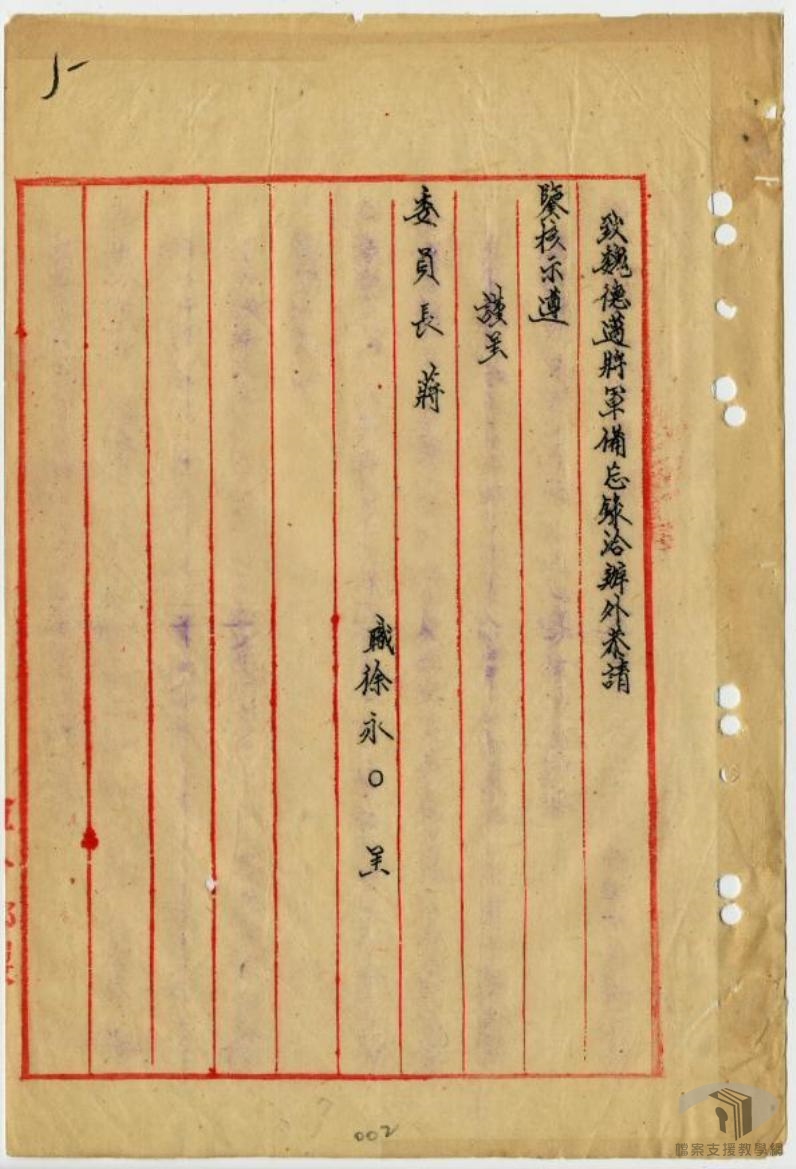 致魏德邁將軍備忘錄洽辦外恭請
鑒核示遵
謹呈
委員長蔣
職徐永○呈
002
檔案支援教學網